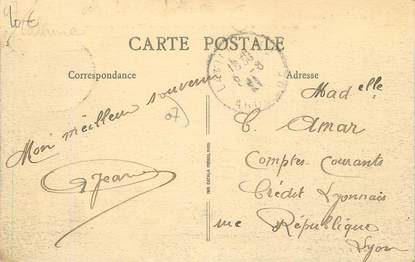 10€
CARTE POSTALE
Correspondance
Adresse
Mon meilleur souvenir
Jeanne
Madelle
C. Amar
Comptes Courants
Crédit Lyonnais
rue République
Lyon